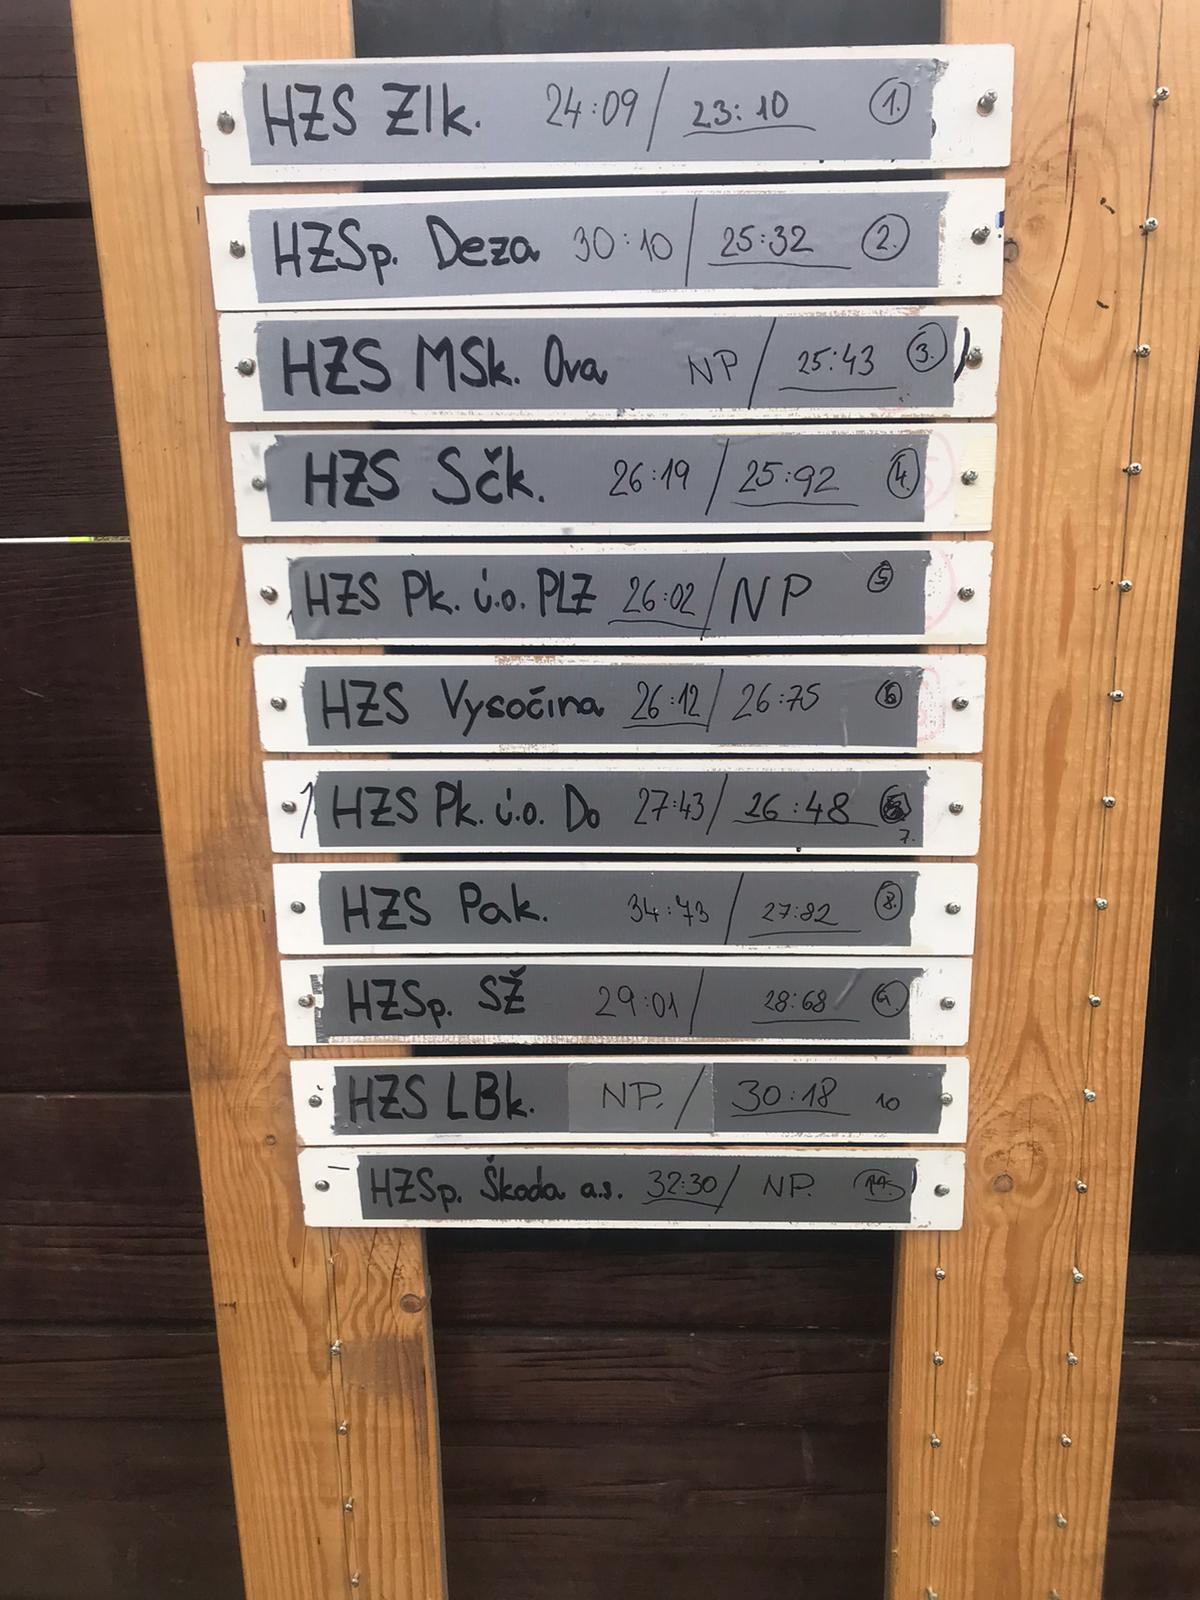 HZS Zlk. 24:09 / 23:10 1.
HZSp. Deza 30:10 / 25:32 2.
HZS MSk. Ova NP / 25:43 3.
HZS Sčk. 26:19 / 25:92 4.
HZS Pk. ú.o. PLZ 26:02 / NP 5
HZS Vysočina 26:12 / 26:75 6
HZS Pk. ú.o. Do 27:43 / 26:48 7.
HZS Pak. 34:73 / 27:82 8.
HZSp. SŽ 29:01 / 28:68 9.
HZS LBk. NP. / 30:18 10
HZSp. Škoda a.s. 32:30 / NP. 11.